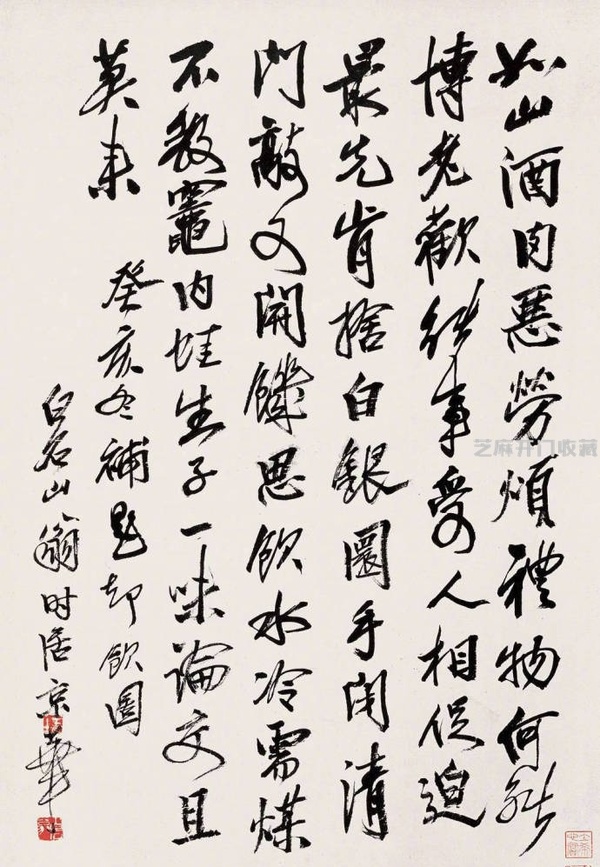 如山酒肉惡勞煩禮物何能
博老歡事受人相促迫
最先肯捨白銀圜手閉清
門敲又開饑思飲水冷需煤
不教竈內蛙生子一味論交且
莫來
癸亥冬補題却飲圖
白石山翁时居京華
芝麻开门收藏